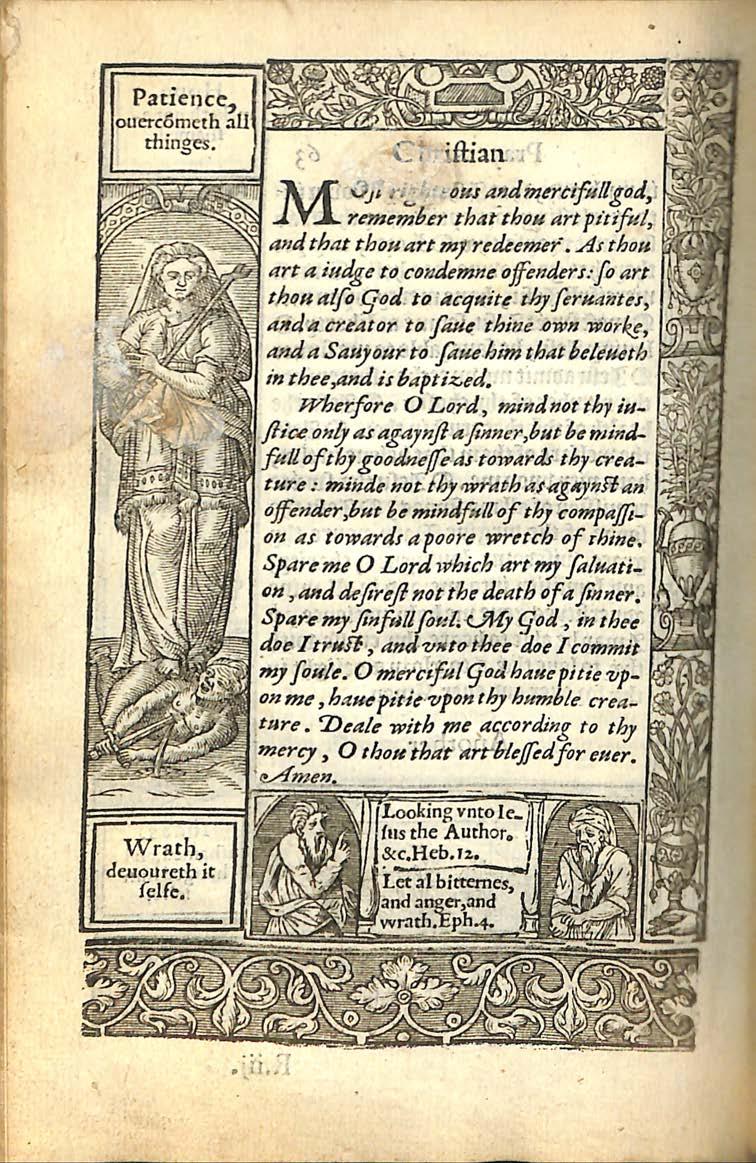 Patience,
ouercõmeth all
thinges.
Christian
MOſt ous and mercifull god,
remember that thou art pitiful,
and that thou art my redeemer. As thou
art a iudge to condemne offenders: ſo art
thou alſo God to acquite thy ſeruantes,
and a creator to ſaue thine own worke,
and a Sauyour to ſaue him that beleueth
in thee, and is baptized.
Wherfore O Lord, mind not thy iu-
ſtice only as agaynſt a ſinner, but be mind-
full of thy goodneſſe as towards thy crea-
ture: minde not thy wrath as agaynſt an
offender, but be mindfull of thy compaſſi-
on as towards a poore wretch of thine.
Spare me O Lord which art my ſaluati-
on, and deſireſt not the death of a ſinner.
Spare my ſinfull ſoul. My God, in thee
doe I truſt, and vnto thee doe I commit
my ſoule. O merciful God haue pitie vp-
on me, haue pitie vpon thy humble crea-
ture. Deale with me according to thy
mercy, O thou that art bleſſed for euer.
Amen.
Wrath,
deuoureth it
ſelfe.
Looking vnto Ie-
ſus the Author.
&c. Heb. 12.
Let al bitternes,
and anger, and
wrath. Eph. 4.